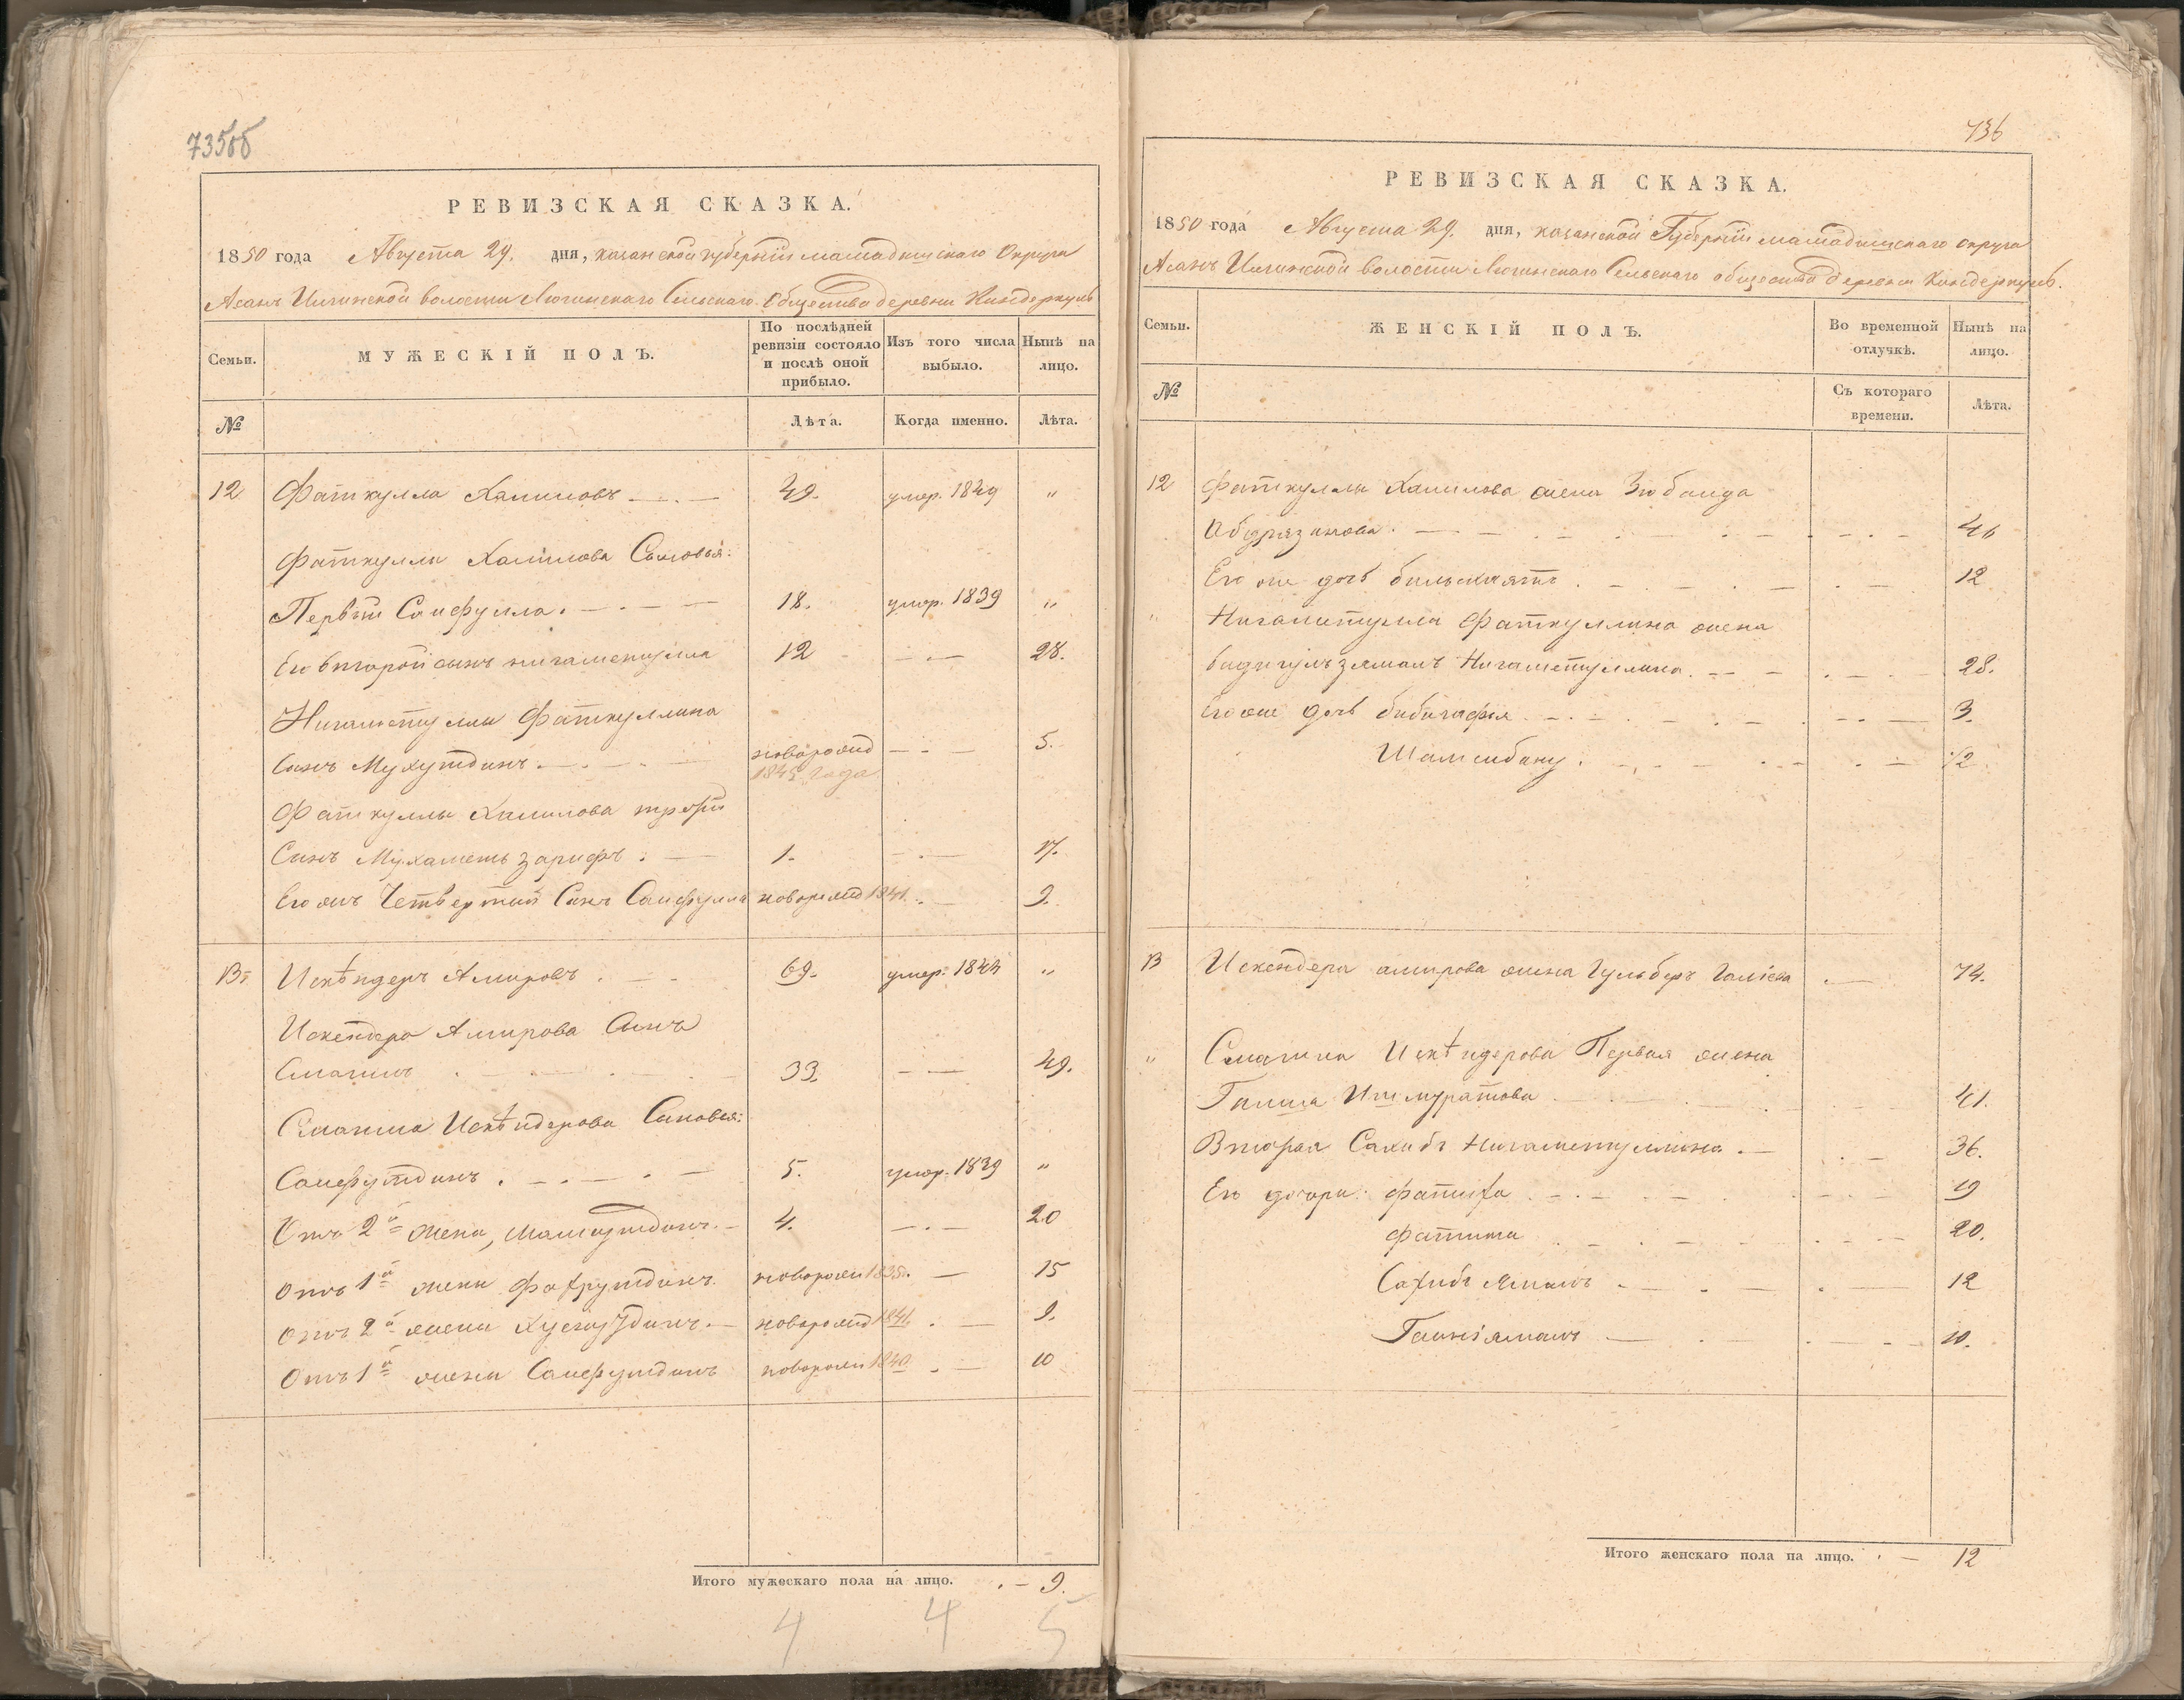 735об
РЕВИЗСКАЯ СКАЗКА.
1850 года Августа 29. дня, казанской губерніи мамадышскаго Округа
Асанъ Илгинской волости Сельскаго Общества деревни Киндеркуль
Семьи.
МУЖЕСКІЙ ПОЛЪ.
По послѣдней ревизіи состояло и послѣ оной прибыло.
Изъ того числа выбыло.
Нынѣ на лицо.
№
Лѣта.
Когда именно.
Лѣта.
12 Фаткулла Халиловъ 49. умер. 1849 "
Фаткуллы Халилова Сыновья:
Первый Сайфулла. 18. умер. 1839 "
Его второй сынъ нигаметулла 12 28.
Нигаметуллы Фаткуллина
Сынъ Мухутдинъ. новорожд 1845 года 5.
Фаткуллы Халилова третій
Сынъ Мухаметь зарифъ. 1. 17.
Его жъ Четвертый Сынъ Сайфулла новорожд 1841. 9.
13. Искѣндеръ Амировъ 69. умер. 1844 "
Искендера Амирова Сынъ
Смагилъ 33. 49.
Смагила Искѣндерова Сыновья:
Сайфутдинъ. 5. умер. 1839 "
Отъ 2й жены, 4. 20
Отъ 1й жены Фахрутдинъ. новорожд 1835. 15
Отъ 2й жены новорожд 1841. 9.
Отъ 1й жены Сайфутдинъ новорожд 1840 10
Итого мужескаго пола на лицо. 9.
4 4 5
736
РЕВИЗСКАЯ СКАЗКА.
1850 года Августа 29. дня, казанской Губерніи мамадышскаго округа
Асанъ Илгинской волости Сельскаго общества деревни Киндеркуль.
Семьи.
ЖЕНСКІЙ ПОЛЪ.
Во временной отлучкѣ.
Нынѣ на лицо.
№
Съ котораго времени.
Лѣта.
12 Фаткуллы Халилова жена Зюбаида
Абдрязакова. 46
Его же дочь 12
" Нигаметуллы Фаткуллина жена
бадигулъзямалъ Нигаметуллина. 28.
Его же дочь бибигафья 3.
Шамсибану. 1/2.
13 Искендера амирова жена Гульберъ Галіева 74.
" Смагила Искѣндерова Первая жена
Галиша Ишмуратова 41.
Вторая Сахибъ Нигаметуллина. 36.
Его дочери: Фатиха 19
Фатима 20.
Сахибъ Ямалъ 12
Гайніямалъ 10.
Итого женскаго пола на лицо. 12